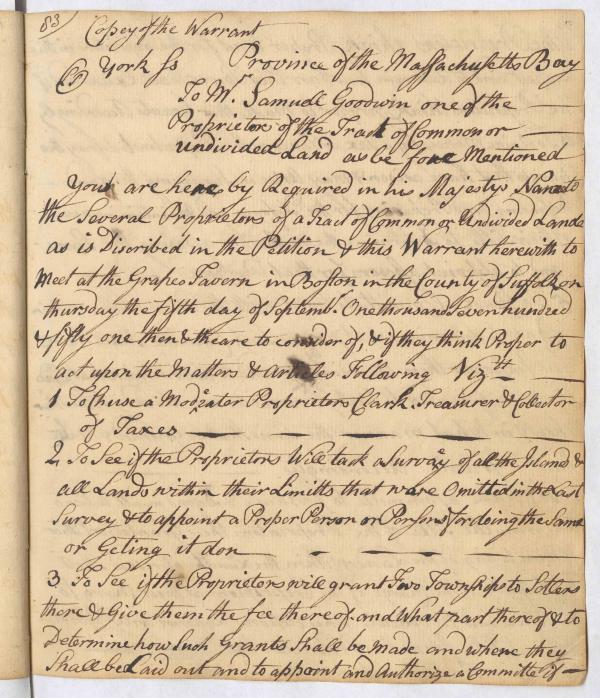 83
Copey of the Warrant
York ss Province of the Massachusetts Bay
To Mr. Samuell Goodwin one of the
Proprietors of the Tract of Common or
undivided Land as be fore Mentioned
You are here by Required in his Majestys Name to
the Several Proprietors of a Tract of Common or Undivided Lands
as is Discribed in the Petition & this Warrant herewith to
Meet at the Grapes Tavern in Boston in the County of Suffolk on
thursday the fifth day of Septembr. One thousand Seven hundred
& fifty one then & theare to consider of, & if they think Proper to
act upon the Matters & Articles Following Vizt
1 To Chuse a Moderator Proprietors Clark, Treasurer & Collector
of Taxes
2 To See if the Proprietors Will task a Survay of all the Island &
all Lands within their Limitts that ware Omitted in the Last
Survey & to appoint a Proper Person or Persons for doing the Same
or Geting it don
3 To See if the Proprietors will grant Two Townships to Setlers
there & Give them the fee there of and What part there of & to
Determine how Such Grants Shall be Made and where they
Shall be Laid out and to appoint and Authorize a Committe if